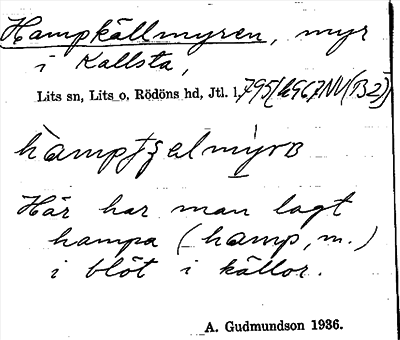 Hampkällmyren, myr
i Kallsta,
Lits sn, Lits o, Rödöns hd, Jtl. l.
Här har man lagt
hampa (hamp, m.)
i blöt i källor.
A. Gudmundson 1936.